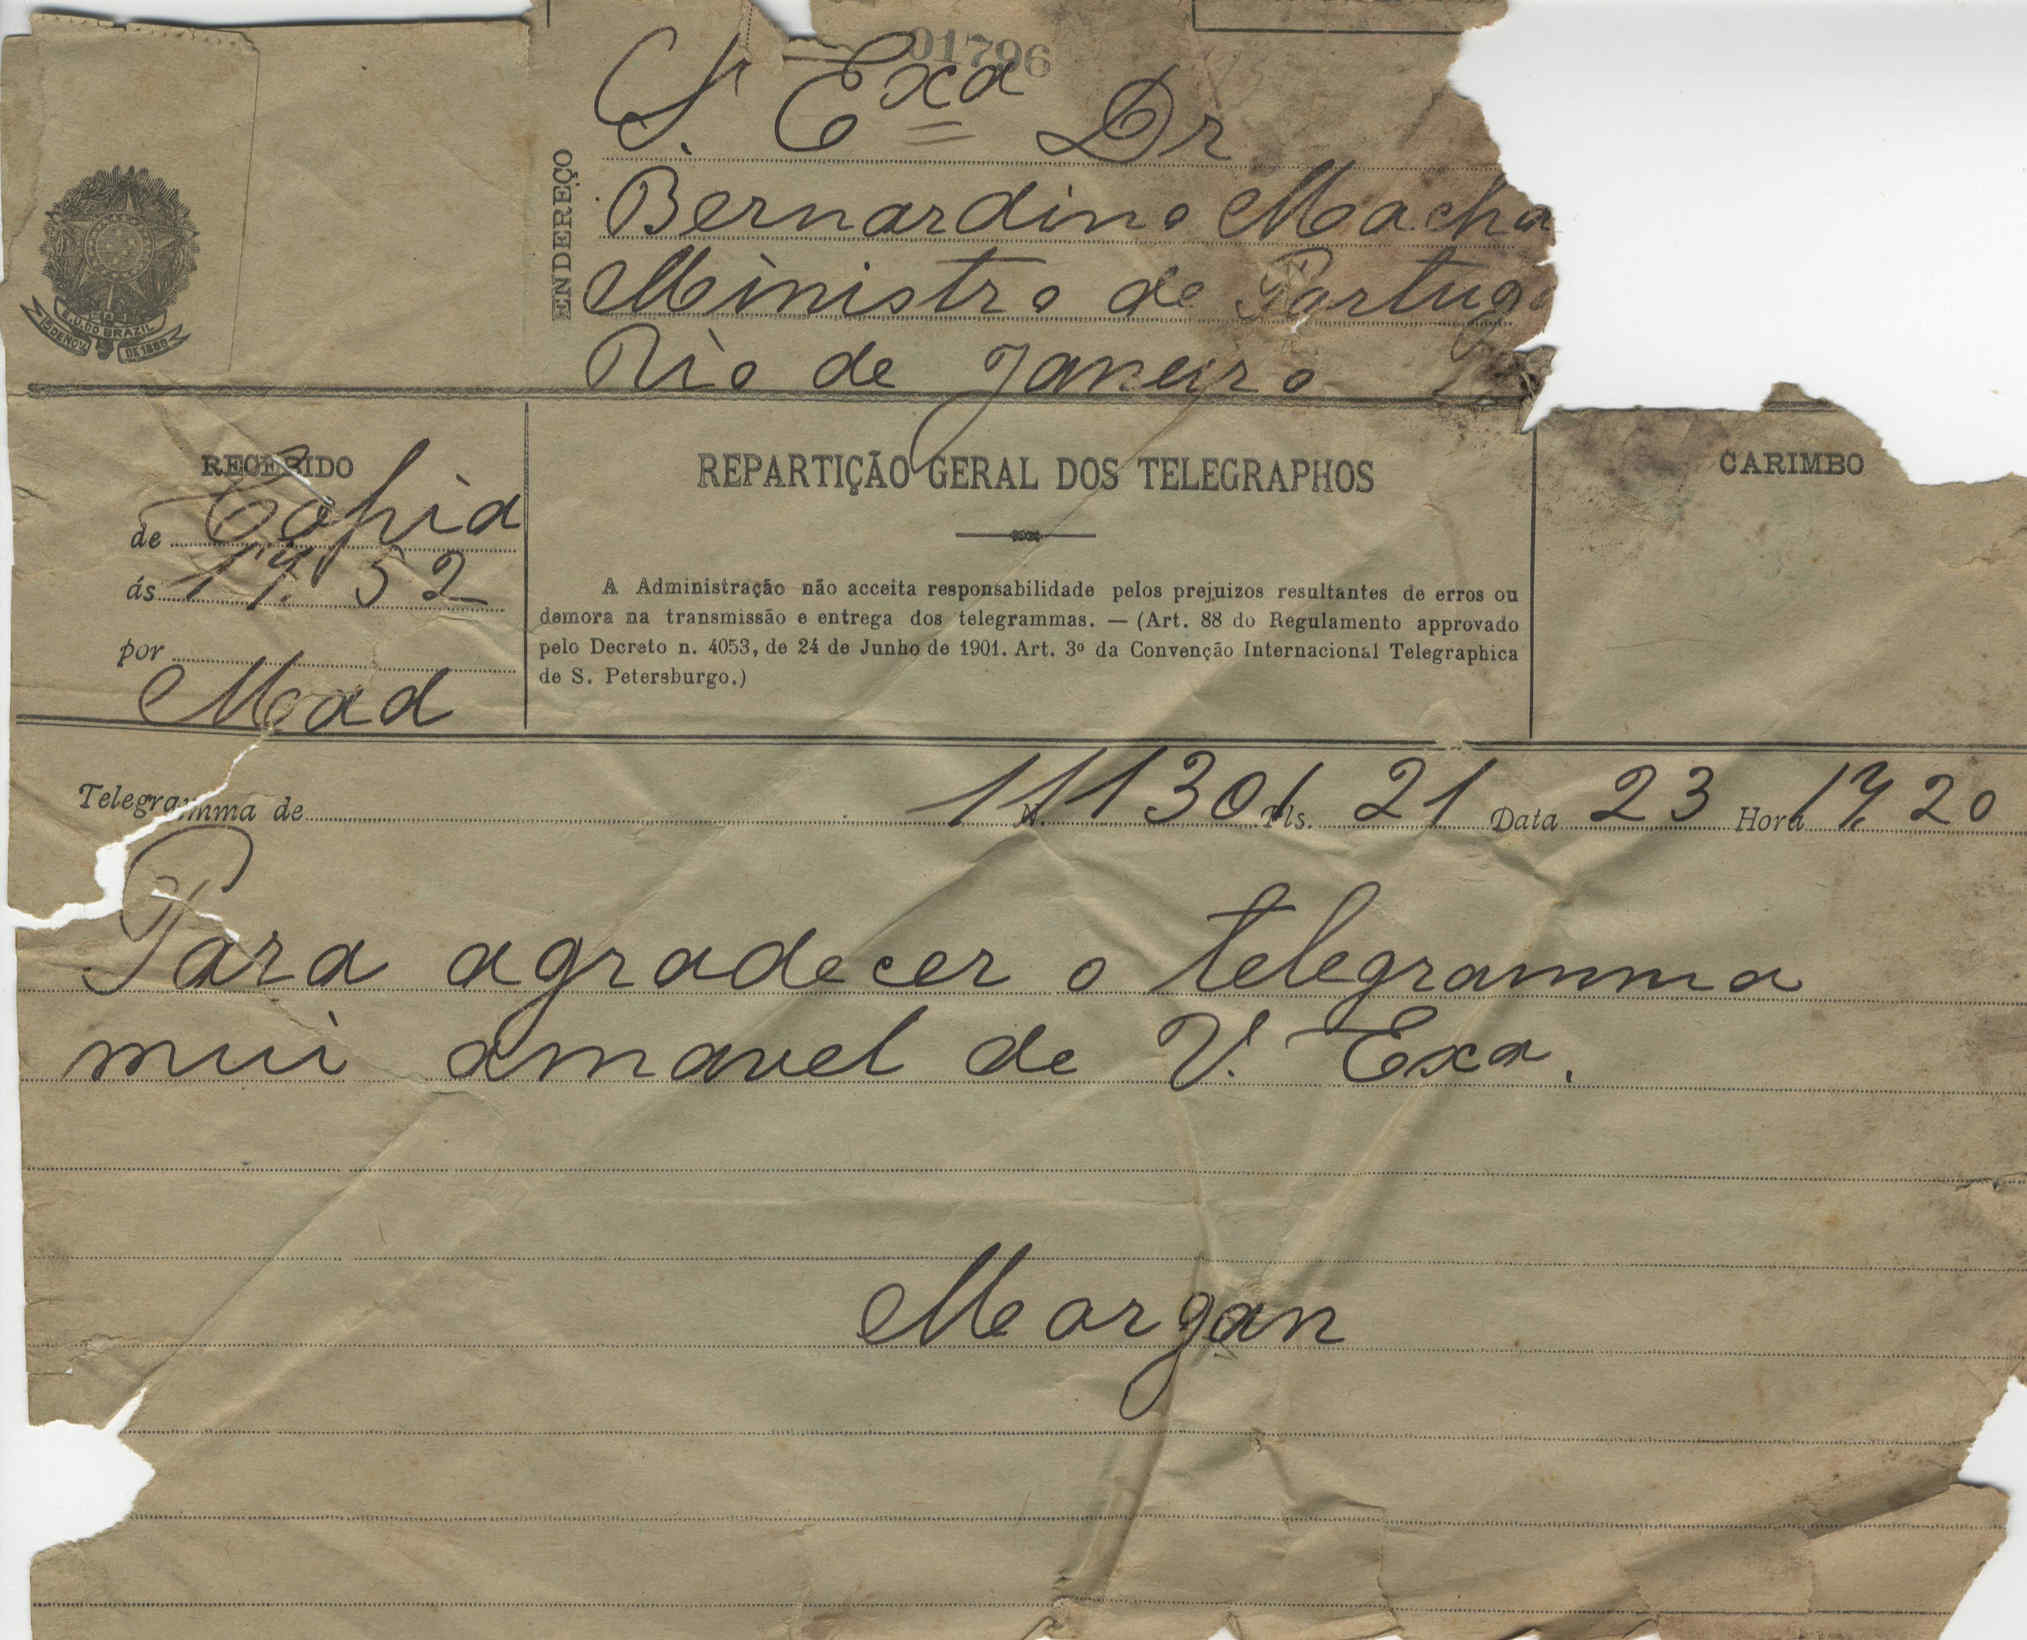 01796
S. Exa Dr
ENDEREÇO
Bernardino Macha
Ministro de Portuga
Rio de Janeiro
E. U. DO BRAZIL
15 DE NOV. DE 1889
RECEBIDO
de Cópia
ás 17. 52
por
Mad
REPARTIÇÃO GERAL DOS TELEGRAPHOS
A Administração não acceita responsabilidade pelos prejuizos resultantes de erros ou
demora na transmissão e entrega dos telegrammas. — (Art. 88 do Regulamento approvado
pelo Decreto n. 4053, de 24 de Junho de 1901. Art. 3º da Convenção Internacional Telegraphica
de S. Petersburgo.)
CARIMBO
Telegramma de N. 111301 Pls. 21 Data 23 Hora 17,20
Para agradecer o telegramma
mui amavel de V. Exa.
Morgan